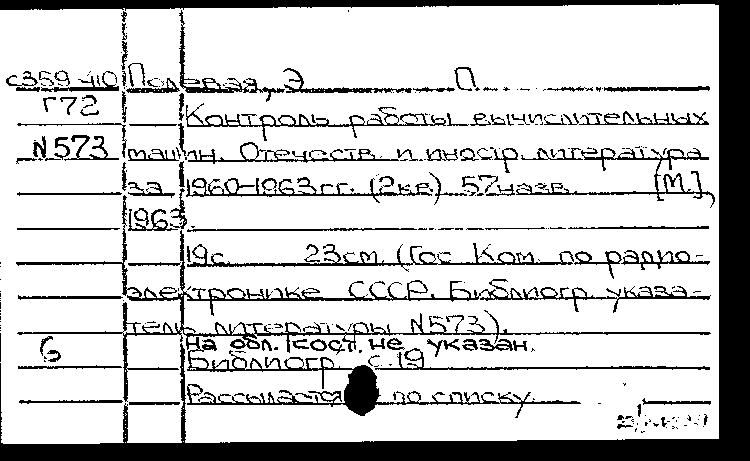 с359-410 Полевая, Э П
Г72 Контроль работы вычислительных
N573 машин. Отечеств. и иностр. литература
за 1960-1963 гг. (2кв.) 57назв. [М.],
1963.
19с. 23см. (Гос Ком. по радио-
электронике СССР. Библиогр. указа-
тель литературы N573).
На обл. сост. не указан.
6 Библиогр. с.19
Рассылается по списку.